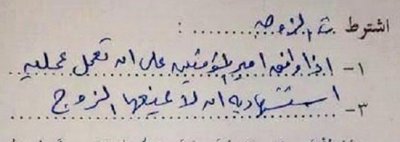 اشترطت الزوجه :
١- اذا وافق امير المؤمنين على ان تعمل عمليه
٣- استشهاديه ان لا يمنعها الزوج